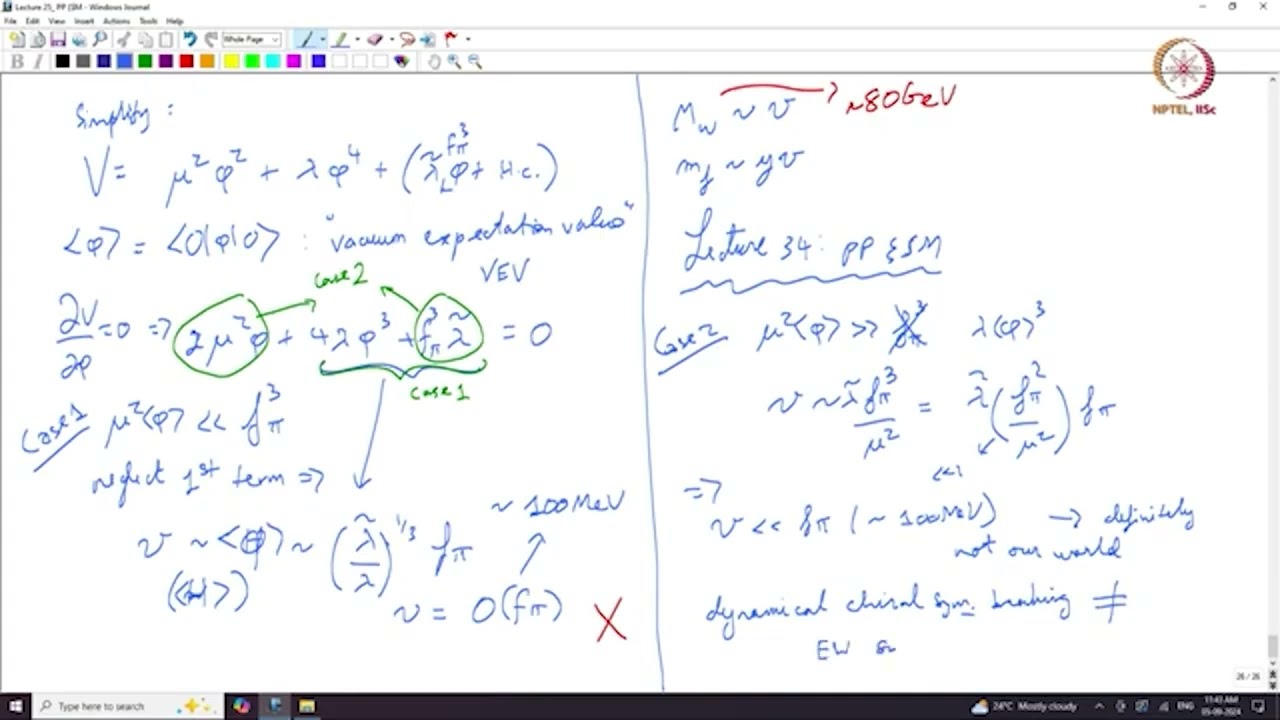 Lecture 25_ PP (SM - Windows Journal
File Edit View Insert Actions Tools Help
Whole Page
B I
NPTEL, IISc
Simplify :
V = μ² φ² + λ φ⁴ + (λ̃ f_π³ φ + H.c.)
<φ> = <0|φ|0> : "vacuum expectation value"
VEV
case 2
∂V/∂φ = 0 => 2μ²φ + 4λφ³ + f_π³ λ̃ = 0
case 1
Case 1 μ²<φ> << f_π³
neglect 1st term =>
~ 100 MeV
v ~ <φ> ~ (λ̃/λ)^1/3 f_π
(<H>)
v = O(f_π) X
M_W ~ v → ~80 GeV
m_f ~ y v
Lecture 34: PP & SM
Case 2 μ²<φ> >> λ<φ>³
v ~ λ̃ f_π³/μ² = λ̃ (f_π²/μ²) f_π
<<1
=>
v << f_π (~ 100 MeV) → definitely
not our world
dynamical chiral sym. breaking ≠
EW
26 / 26
Type here to search
24°C Mostly cloudy
ENG
11:43 AM
05-09-2024